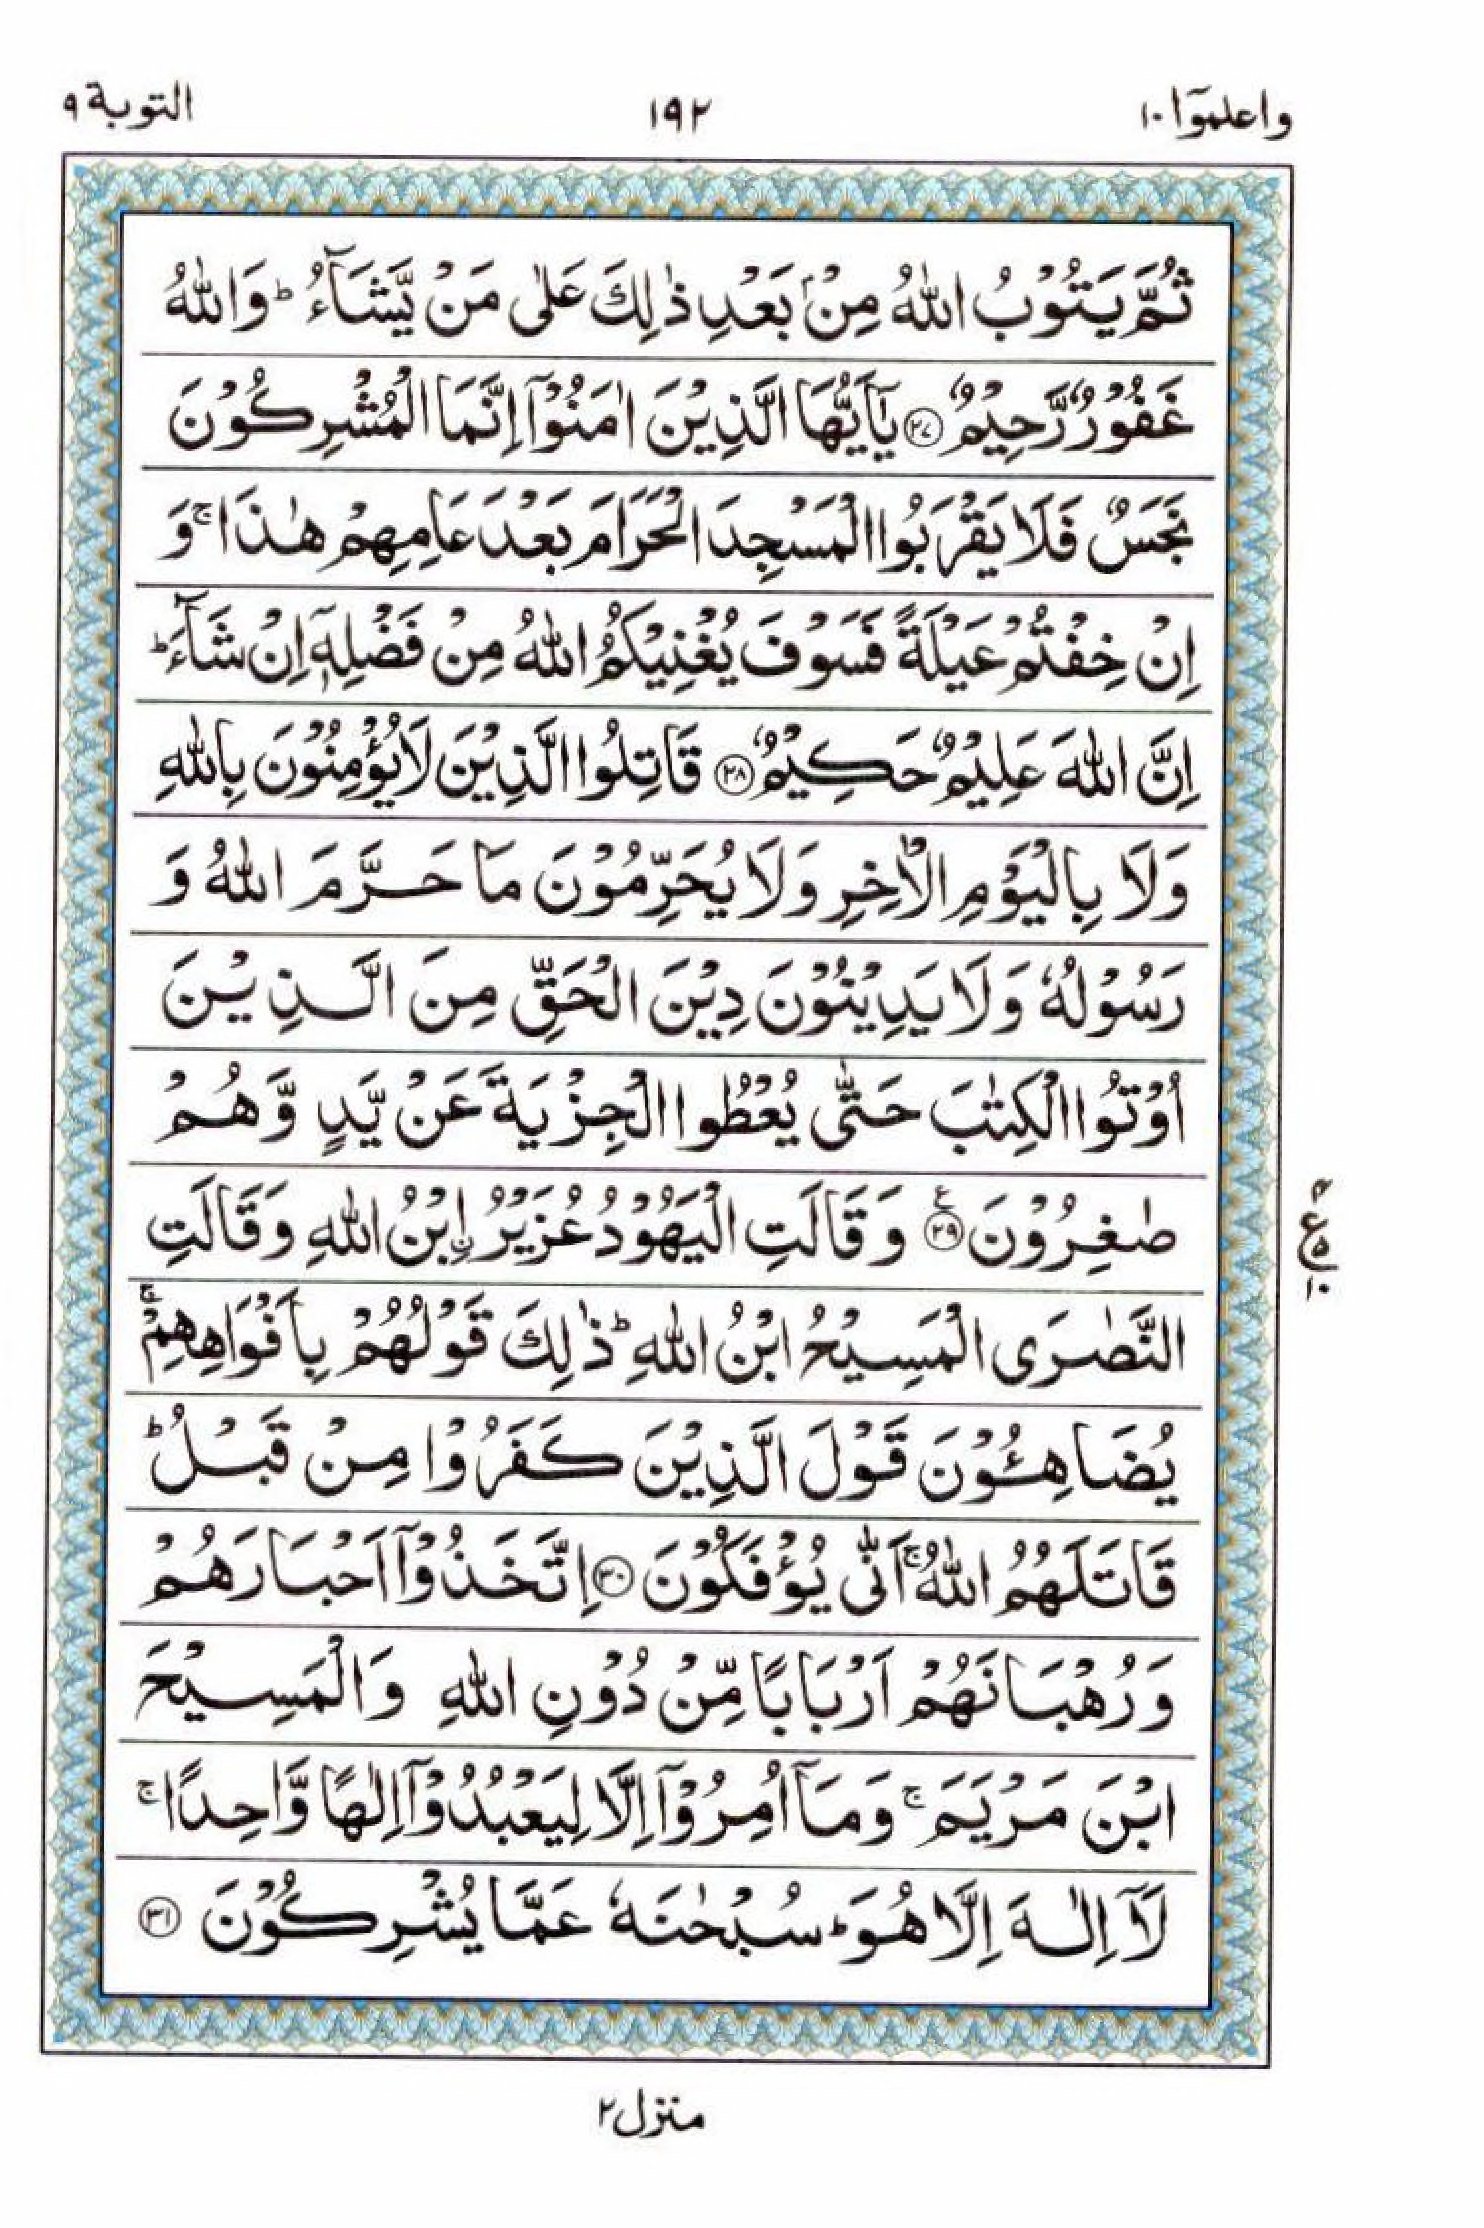 واعلموٓا ١٠
١٩٢
التوبة ٩
ثُمَّ يَتُوْبُ اللّٰهُ مِنْۢ بَعْدِ ذٰلِكَ عَلٰى مَنْ يَّشَآءُ ؕ وَاللّٰهُ
غَفُوْرٌ رَّحِيْمٌ ﴿۲۷﴾ يٰٓاَيُّهَا الَّذِيْنَ اٰمَنُوْٓا اِنَّمَا الْمُشْرِكُوْنَ
نَجَسٌ فَلَا يَقْرَبُوا الْمَسْجِدَ الْحَرَامَ بَعْدَ عَامِهِمْ هٰذَا ۚ وَ
اِنْ خِفْتُمْ عَيْلَةً فَسَوْفَ يُغْنِيْكُمُ اللّٰهُ مِنْ فَضْلِهٖٓ اِنْ شَآءَ ؕ
اِنَّ اللّٰهَ عَلِيْمٌ حَكِيْمٌ ﴿۲۸﴾ قَاتِلُوا الَّذِيْنَ لَا يُؤْمِنُوْنَ بِاللّٰهِ
وَلَا بِالْيَوْمِ الْاٰخِرِ وَلَا يُحَرِّمُوْنَ مَا حَرَّمَ اللّٰهُ وَ
رَسُوْلُهٗ وَلَا يَدِيْنُوْنَ دِيْنَ الْحَقِّ مِنَ الَّذِيْنَ
اُوْتُوا الْكِتٰبَ حَتّٰى يُعْطُوا الْجِزْيَةَ عَنْ يَّدٍ وَّهُمْ
صٰغِرُوْنَ ﴿۲۹﴾ ع وَقَالَتِ الْيَهُوْدُ عُزَيْرُ ۨابْنُ اللّٰهِ وَقَالَتِ
النَّصٰرَى الْمَسِيْحُ ابْنُ اللّٰهِ ؕ ذٰلِكَ قَوْلُهُمْ بِاَفْوَاهِهِمْ ۚ
يُضَاهِـُٔوْنَ قَوْلَ الَّذِيْنَ كَفَرُوْا مِنْ قَبْلُ ؕ
قَاتَلَهُمُ اللّٰهُ ۚ اَنّٰى يُؤْفَكُوْنَ ﴿۳۰﴾ اِتَّخَذُوْٓا اَحْبَارَهُمْ
وَرُهْبَانَهُمْ اَرْبَابًا مِّنْ دُوْنِ اللّٰهِ وَالْمَسِيْحَ
ابْنَ مَرْيَمَ ۚ وَمَآ اُمِرُوْٓا اِلَّا لِيَعْبُدُوْٓا اِلٰهًا وَّاحِدًا ۚ
لَآ اِلٰهَ اِلَّا هُوَ ؕ سُبْحٰنَهٗ عَمَّا يُشْرِكُوْنَ ﴿۳۱﴾
ع
۵
١٠
منزل ٢